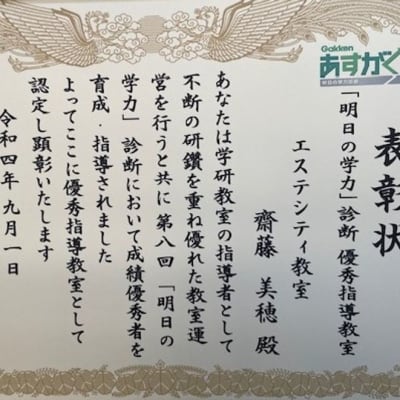 Gakken
あすがく
表彰状
「明日の学力」診断 優秀指導教室
エステシティ教室
齋藤 美穂 殿
あなたは学研教室の指導者として
不断の研鑽を重ね優れた教室運
営を行うと共に 第八回 「明日の
学力」 診断において成績優秀者を
育成・指導されました
よってここに優秀指導教室として
認定し顕彰いたします
令和四年 九月一日